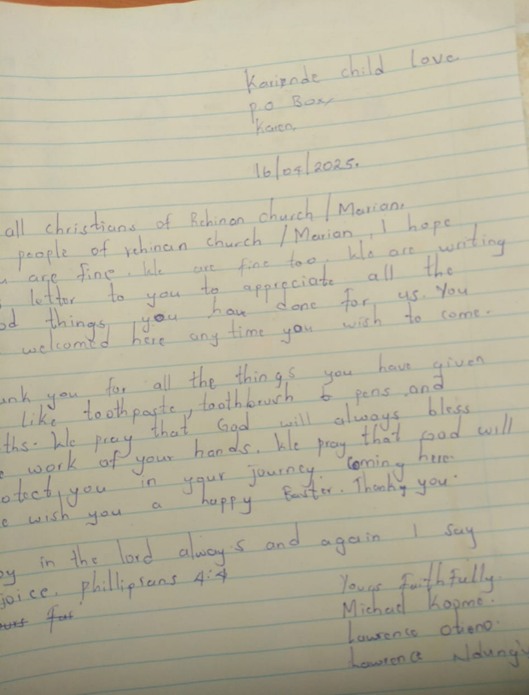 Kariende child love
P.O Box
Karen
16/04/2025.
all christians of Rehinan church / Marian.
people of rehinan church / Marian, I hope
are fine. We are fine too. We are writing
letter to you to appreciate all the
things you have done for us. You
welcomed here any time you wish to come.
you for all the things you have given
like toothpaste, toothbrush & pens and
We pray that God will always bless
work of your hands. We pray that God will
you in your journey coming here.
wish you a happy Easter. Thank you.
in the lord always and again I say
phillipians 4:4
Yours Faithfully
Michael
Lawrence Otieno.
Lawrence